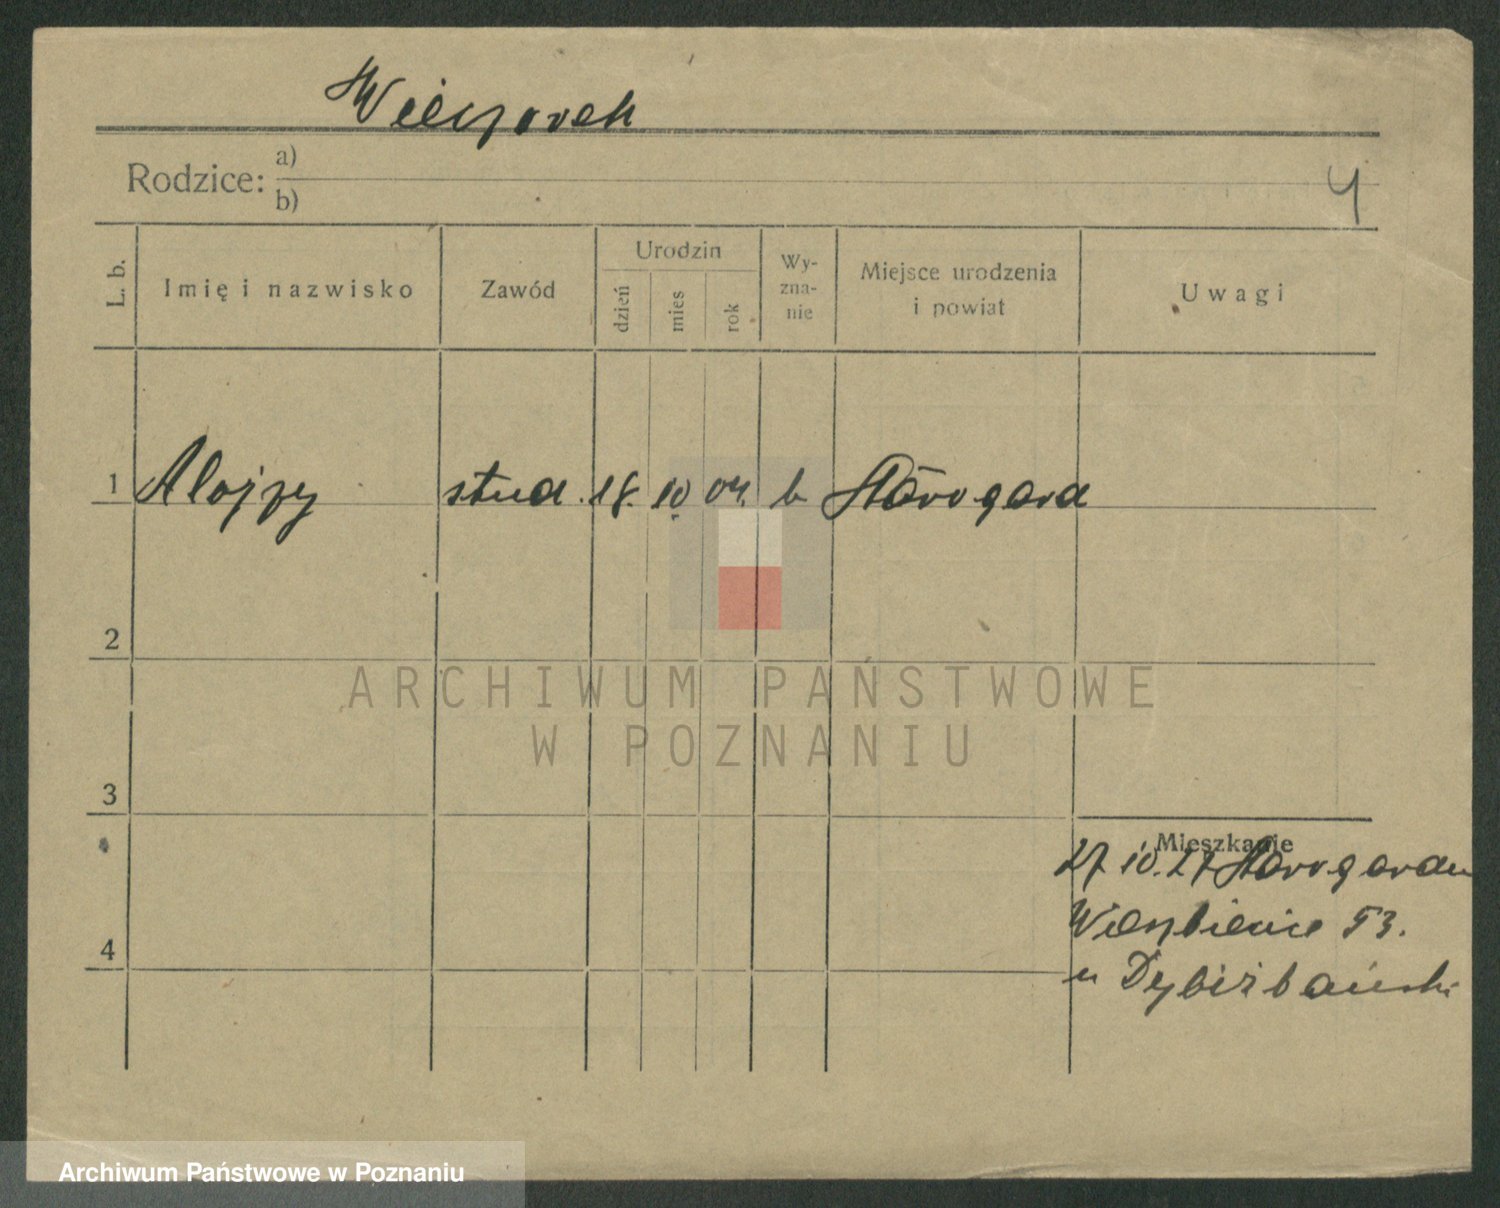 Wieczorek
Rodzice: a)
b)
4
L. b.
Imię i nazwisko
Zawód
Urodzin
dzień
mies
rok
Wy-
zna-
nie
Miejsce urodzenia
i powiat
Uwagi
1 Alojzy stud. 18. 10 04. k Starogard
2
3
4
Mieszkanie
27 10. 27 Starogard
Wierzbiecice 53.
u
ARCHIWUM PAŃSTWOWE
W POZNANIU
Archiwum Państwowe w Poznaniu